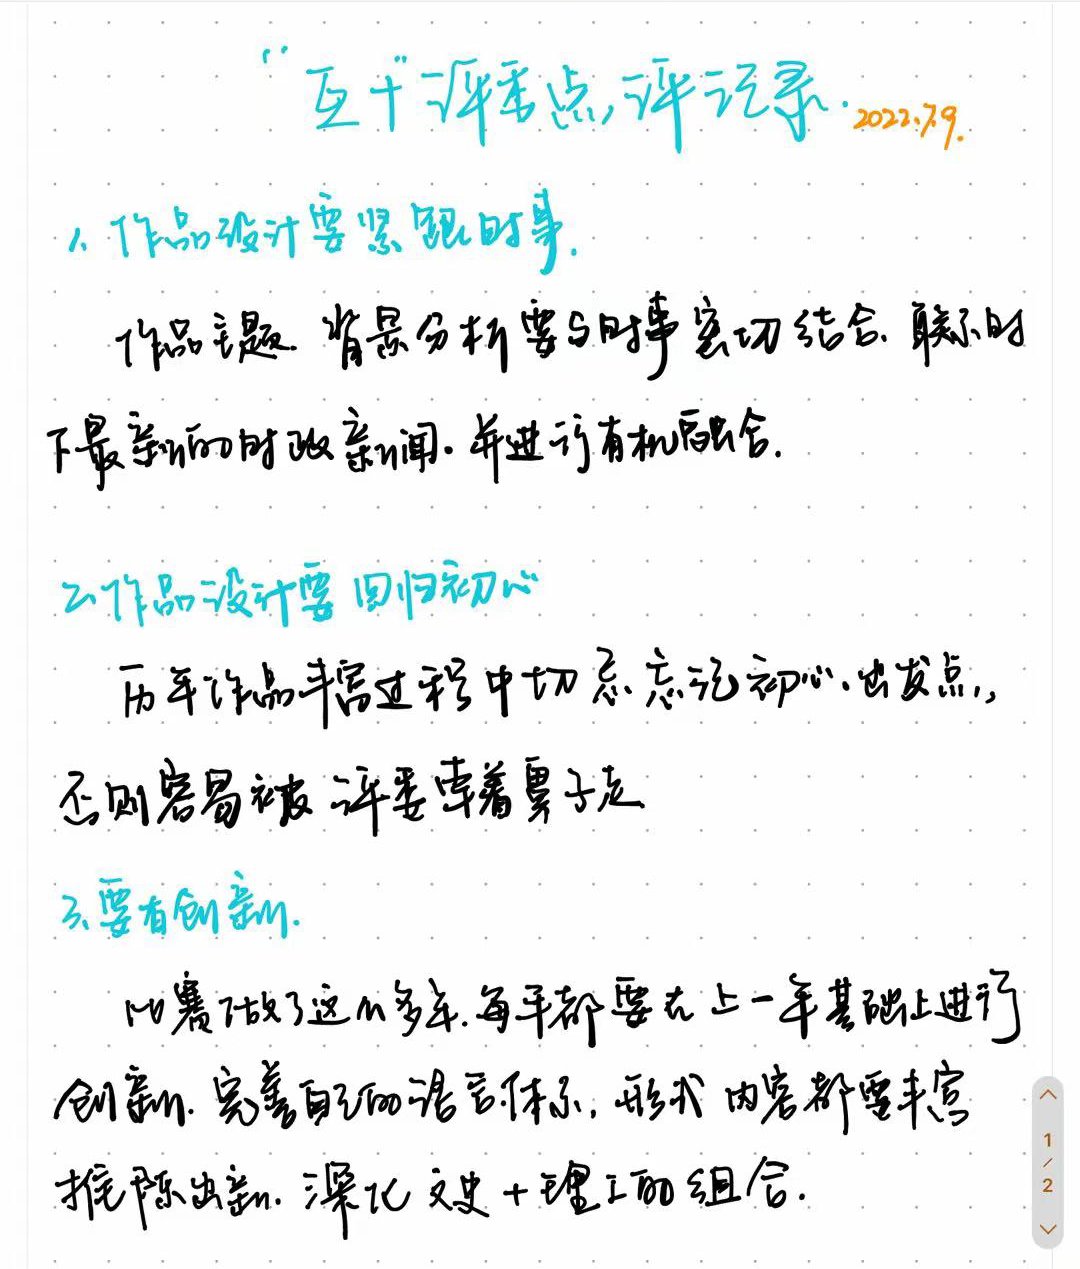 “互+”评委点评记录. 2022.7.9.
1. 作品设计要紧跟时事.
作品主题. 背景分析要与时事密切结合. 联系时
下最新的时政新闻. 并进行有机融合.
2. 作品设计要回归初心
历年作品丰富过程中切忌忘记初心. 出发点,
否则容易被评委牵着鼻子走
3. 要有创新.
比赛做了这么多年. 每年都要在上一年基础上进行
创新. 完善自己的语言体系, 形式内容都要丰富
推陈出新. 深化文史+理工的组合.
1
/
2